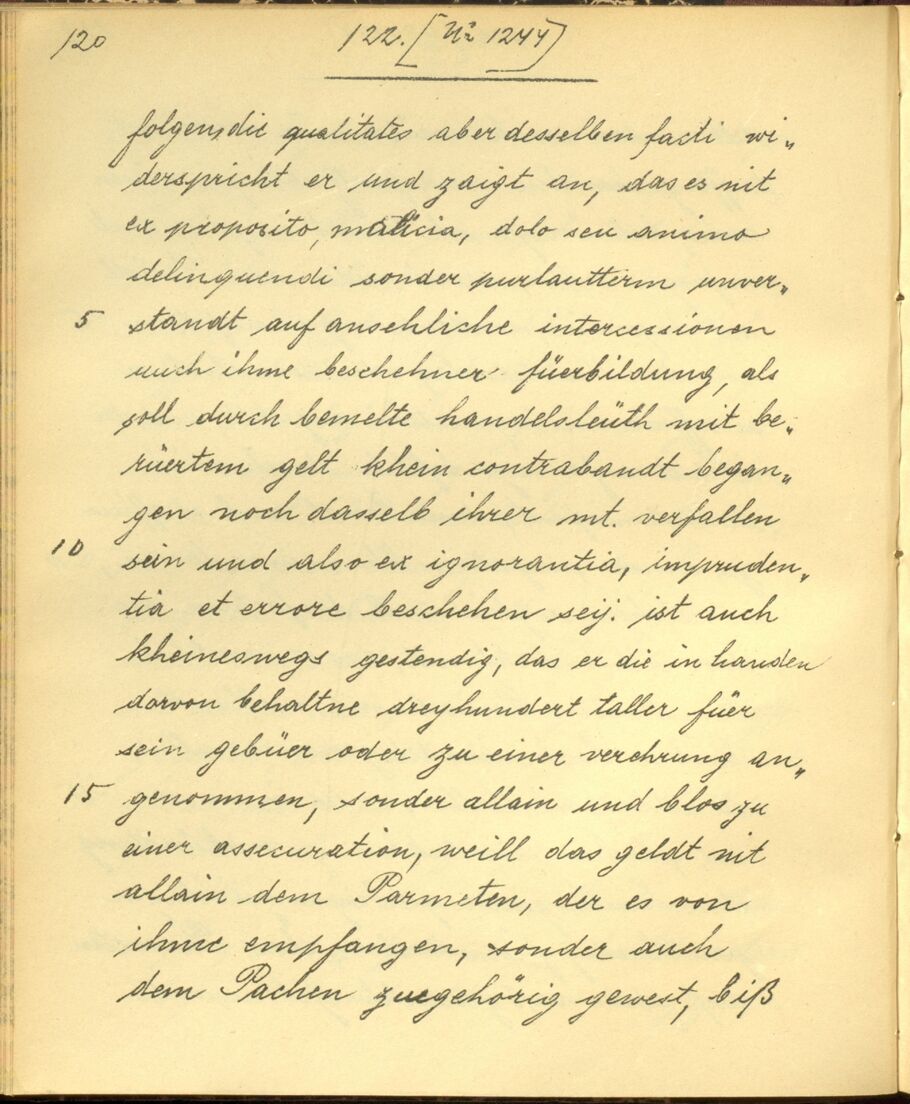 120
122. [Nr 1244]
folgen, die qualitates aber desselben facti wi„
derspricht er und zaigt an, das es nit
ex proposito, malicia, dolo seu animo
delinquendi sonder purlautterm unver„
5 standt auf ansehliche intercessionen
auch ihme beschehner füerbildung, als
soll durch bemelte handelsleüth mit be„
rüertem gelt khein contrabandt began„
gen noch dasselb ihrer mt. verfallen
10 sein und also ex ignorantia, impruden„
tia et errore beschehen seÿ. ist auch
kheineswegs gestendig, das er die in handen
darvon behaltne dreyhundert taller füer
sein gebüer oder zu einer verehrung an„
15 genommen, sonder allain und blos zu
einer assecuration, weill das geldt nit
allain dem Parmeten, der es von
ihme empfangen, sonder auch
dem Pachen zuegehörig gewest, biß